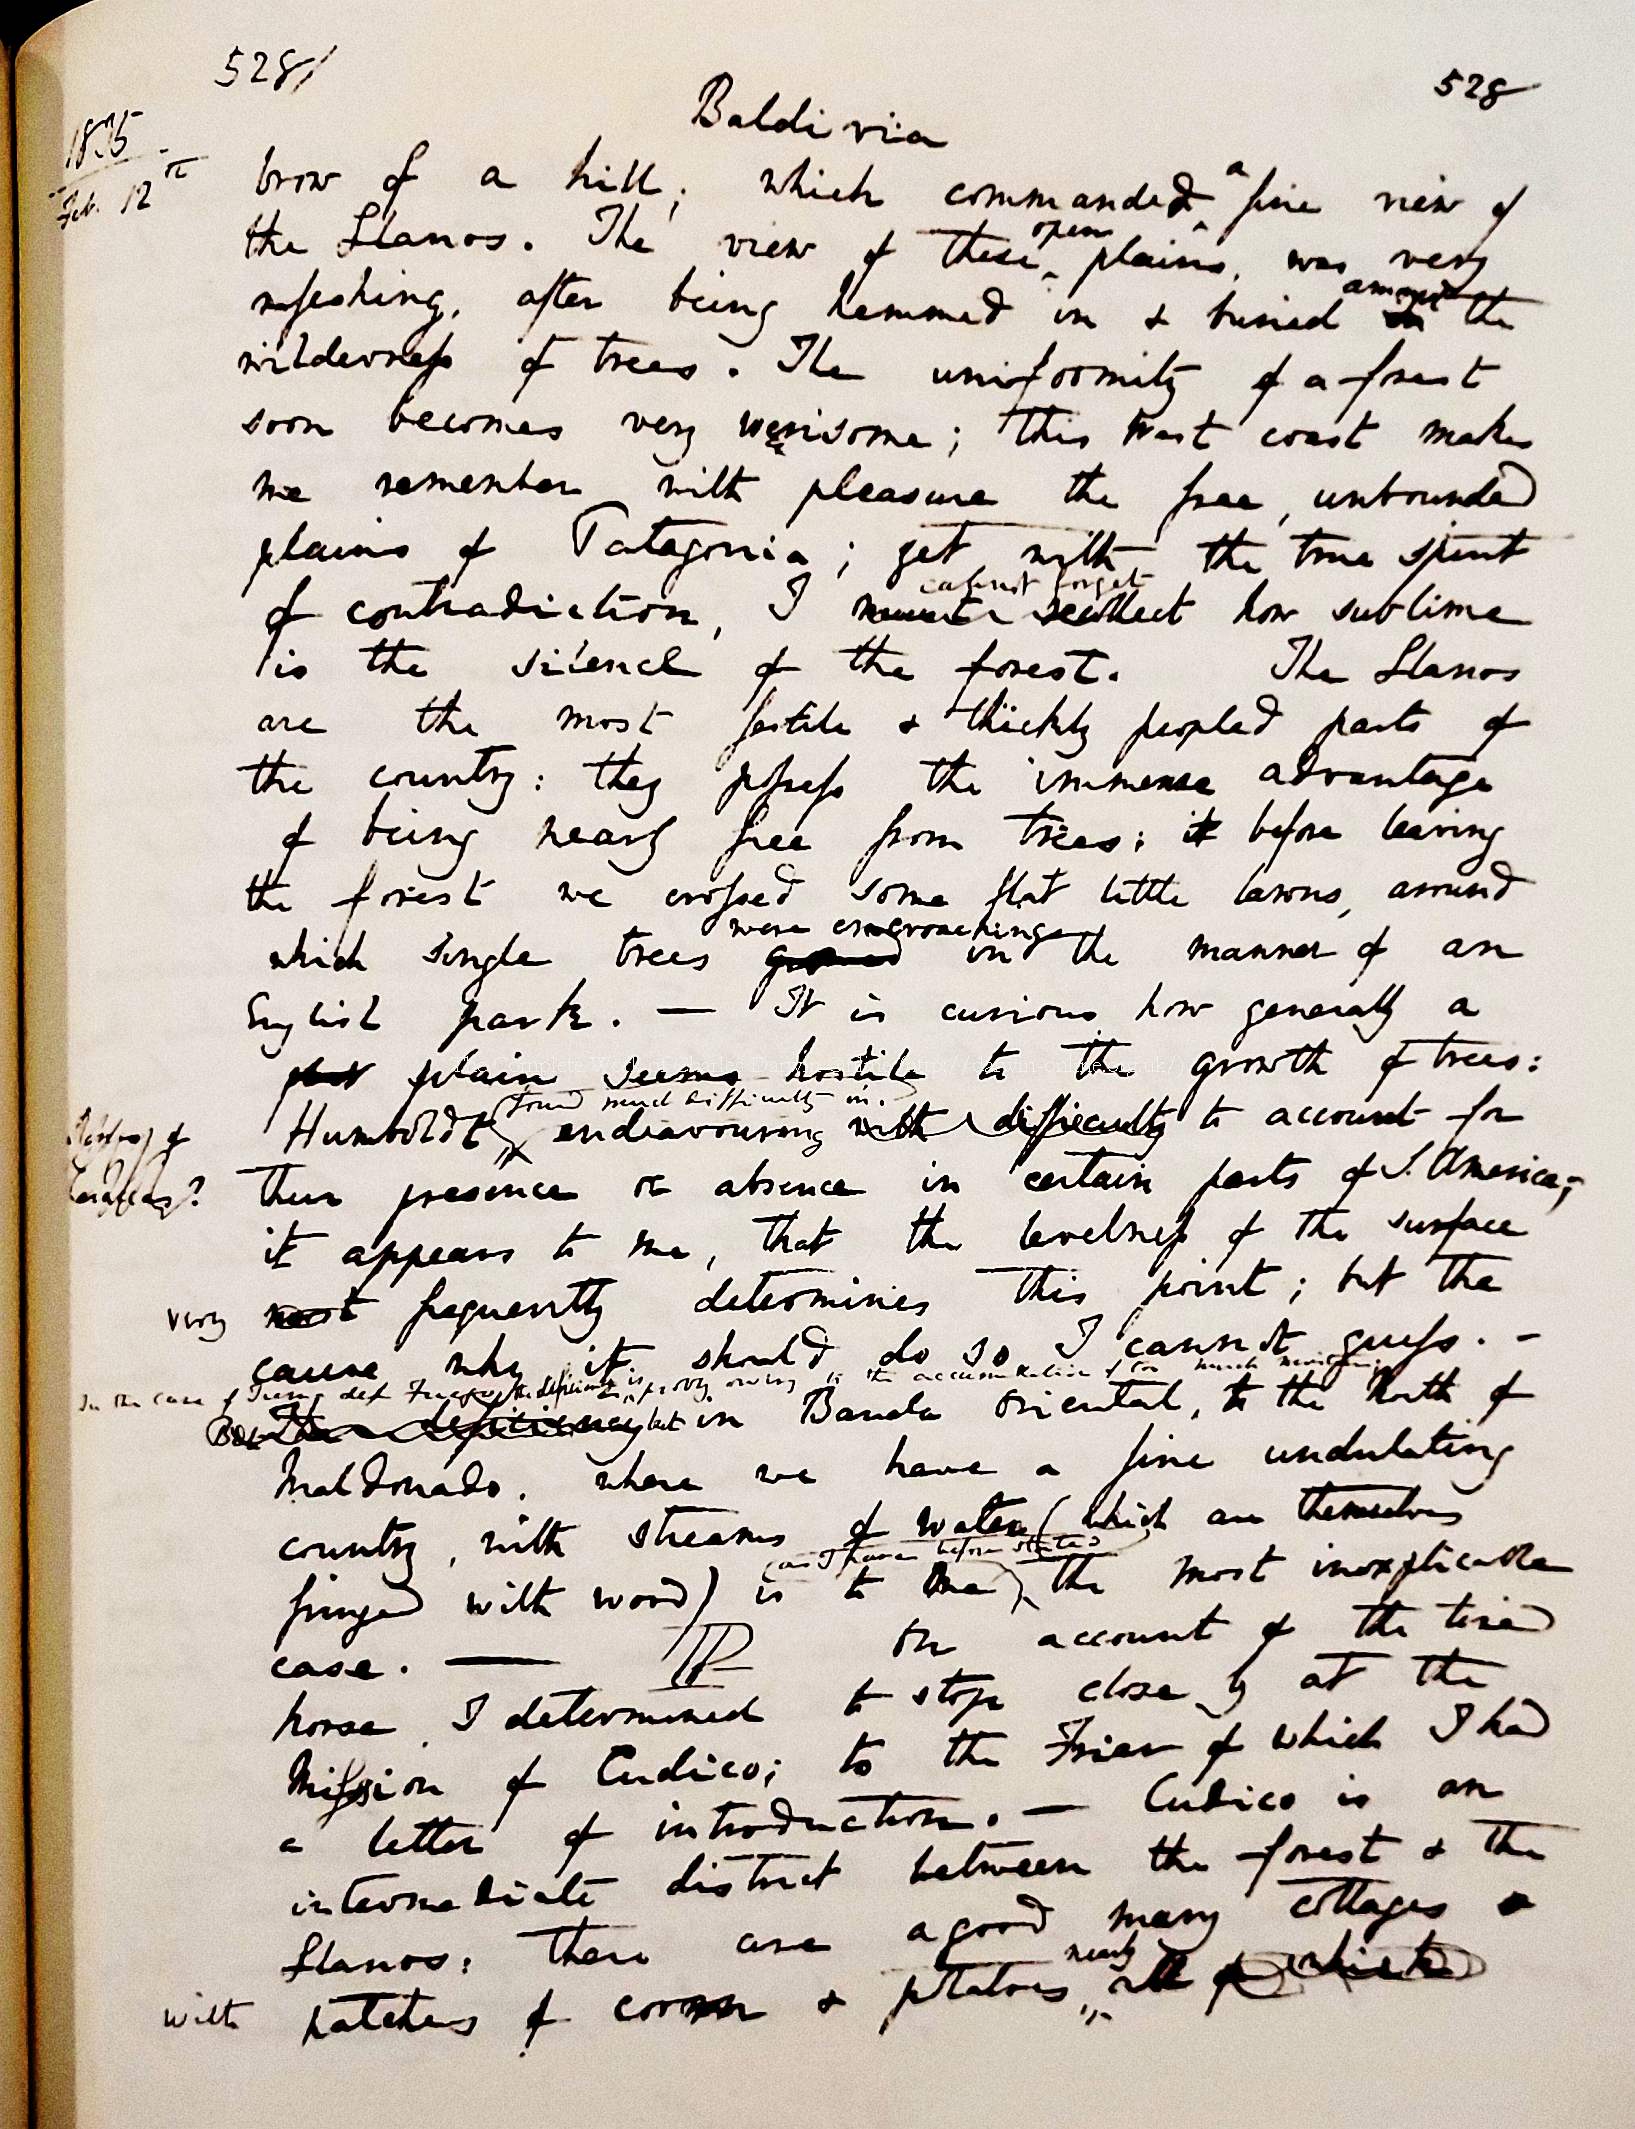 528/
528
Baldivia
1835
Feb. 12th
brow of a hill, which commanded a fine view of
the Llanos. The view of these open plains, was very
refreshing, after being hemmed in & buried amongst the
wilderness of trees. The uniformity of a forest
soon becomes very werisome; this West coast makes
me remember with pleasure the free, unbounded
plains of Patagonia; yet with the true spirit
cannot forget
of contradiction, I recollect how sublime
is the silence of the forest. The Llanos
are the most fertile & thickly peopled parts of
the country: they possess the immense advantage
of being nearly free from trees: before leaving
the forest we crossed some flat little lawns, around
were encroaching
which single trees in the manner of an
English park. — It is curious how generally a
plain seems hostile to the growth of trees:
(found much difficulty in.)
Humboldt endeavouring with difficulty to account for
their presence or absence in certain parts of S. America;
it appears to me, that the levelness of the surface
very most frequently determines this point; but the
cause why it should do so I cannot guess. —
In the case of Tierra del Fuego the deficiency is probably owing to the accumulation of too much
But The deficiency but in Banda Oriental, to the North of
Maldonado, where we have a fine undulating
country, with streams of water (which are themselves
(as I have before stated)
fringed with wood) is to me, the most inexplicable
case. — On account of the tired
horse, I determined to stop close by at the
Mission of Cudico; to the Friar of which I had
a letter of introduction. — Cudico is an
intermediate district between the forest & the
Llanos: there are a good many cottages &
nearly
with patches of corn & potatoes, all of which